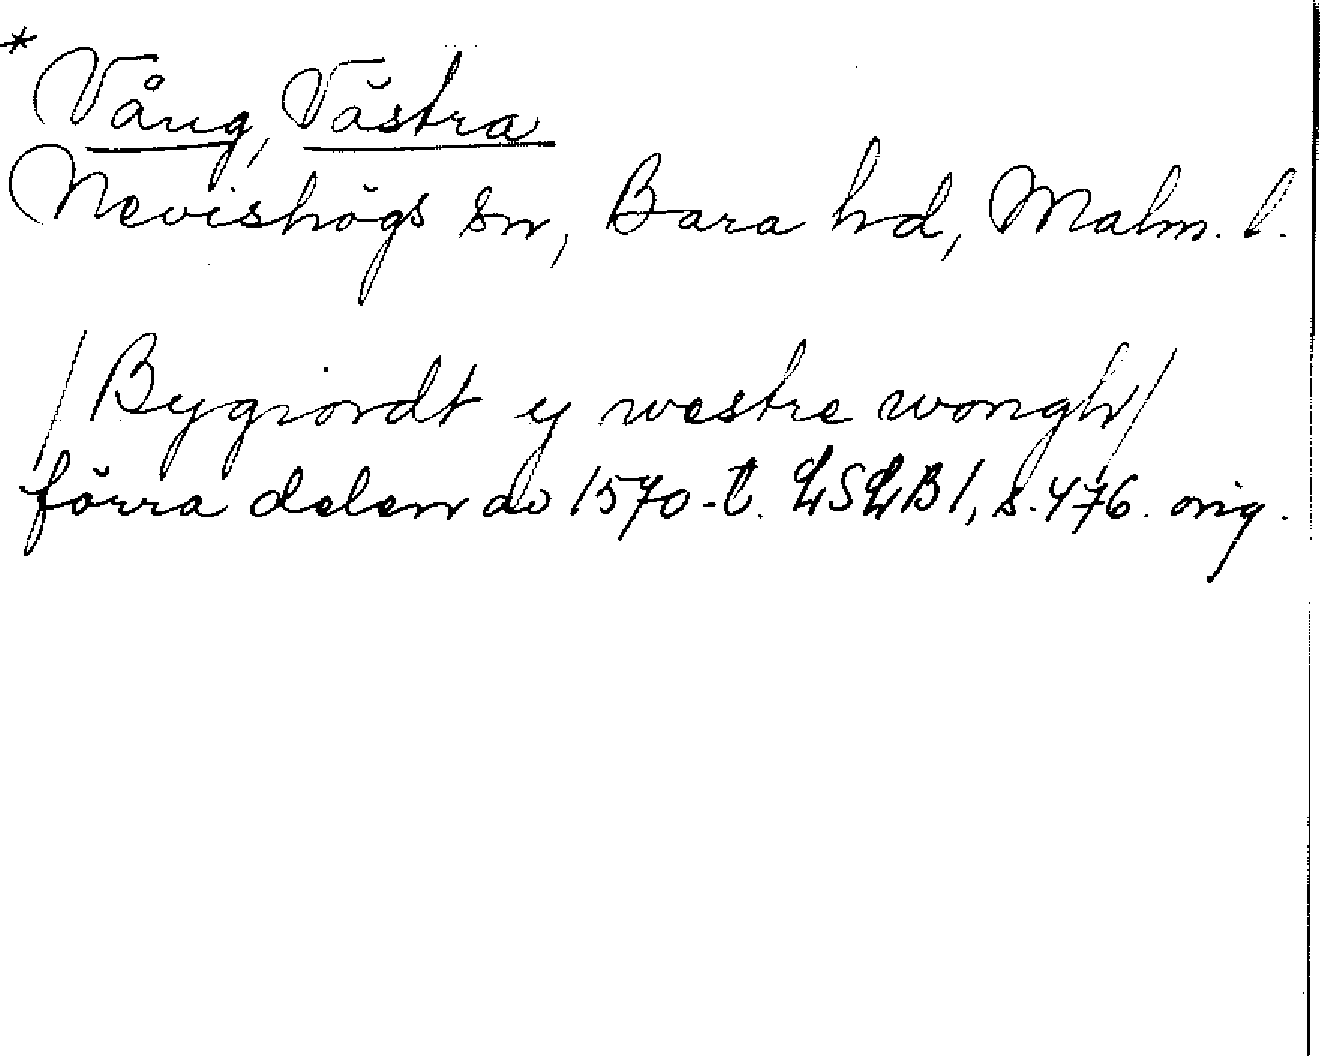 * Vång, Västra
Nevishögs sn, Bara hd, Malm. l.
/Bygiordt y westre wongh/
förra delen av 1570-t. LSLB 1, s. 476. orig.